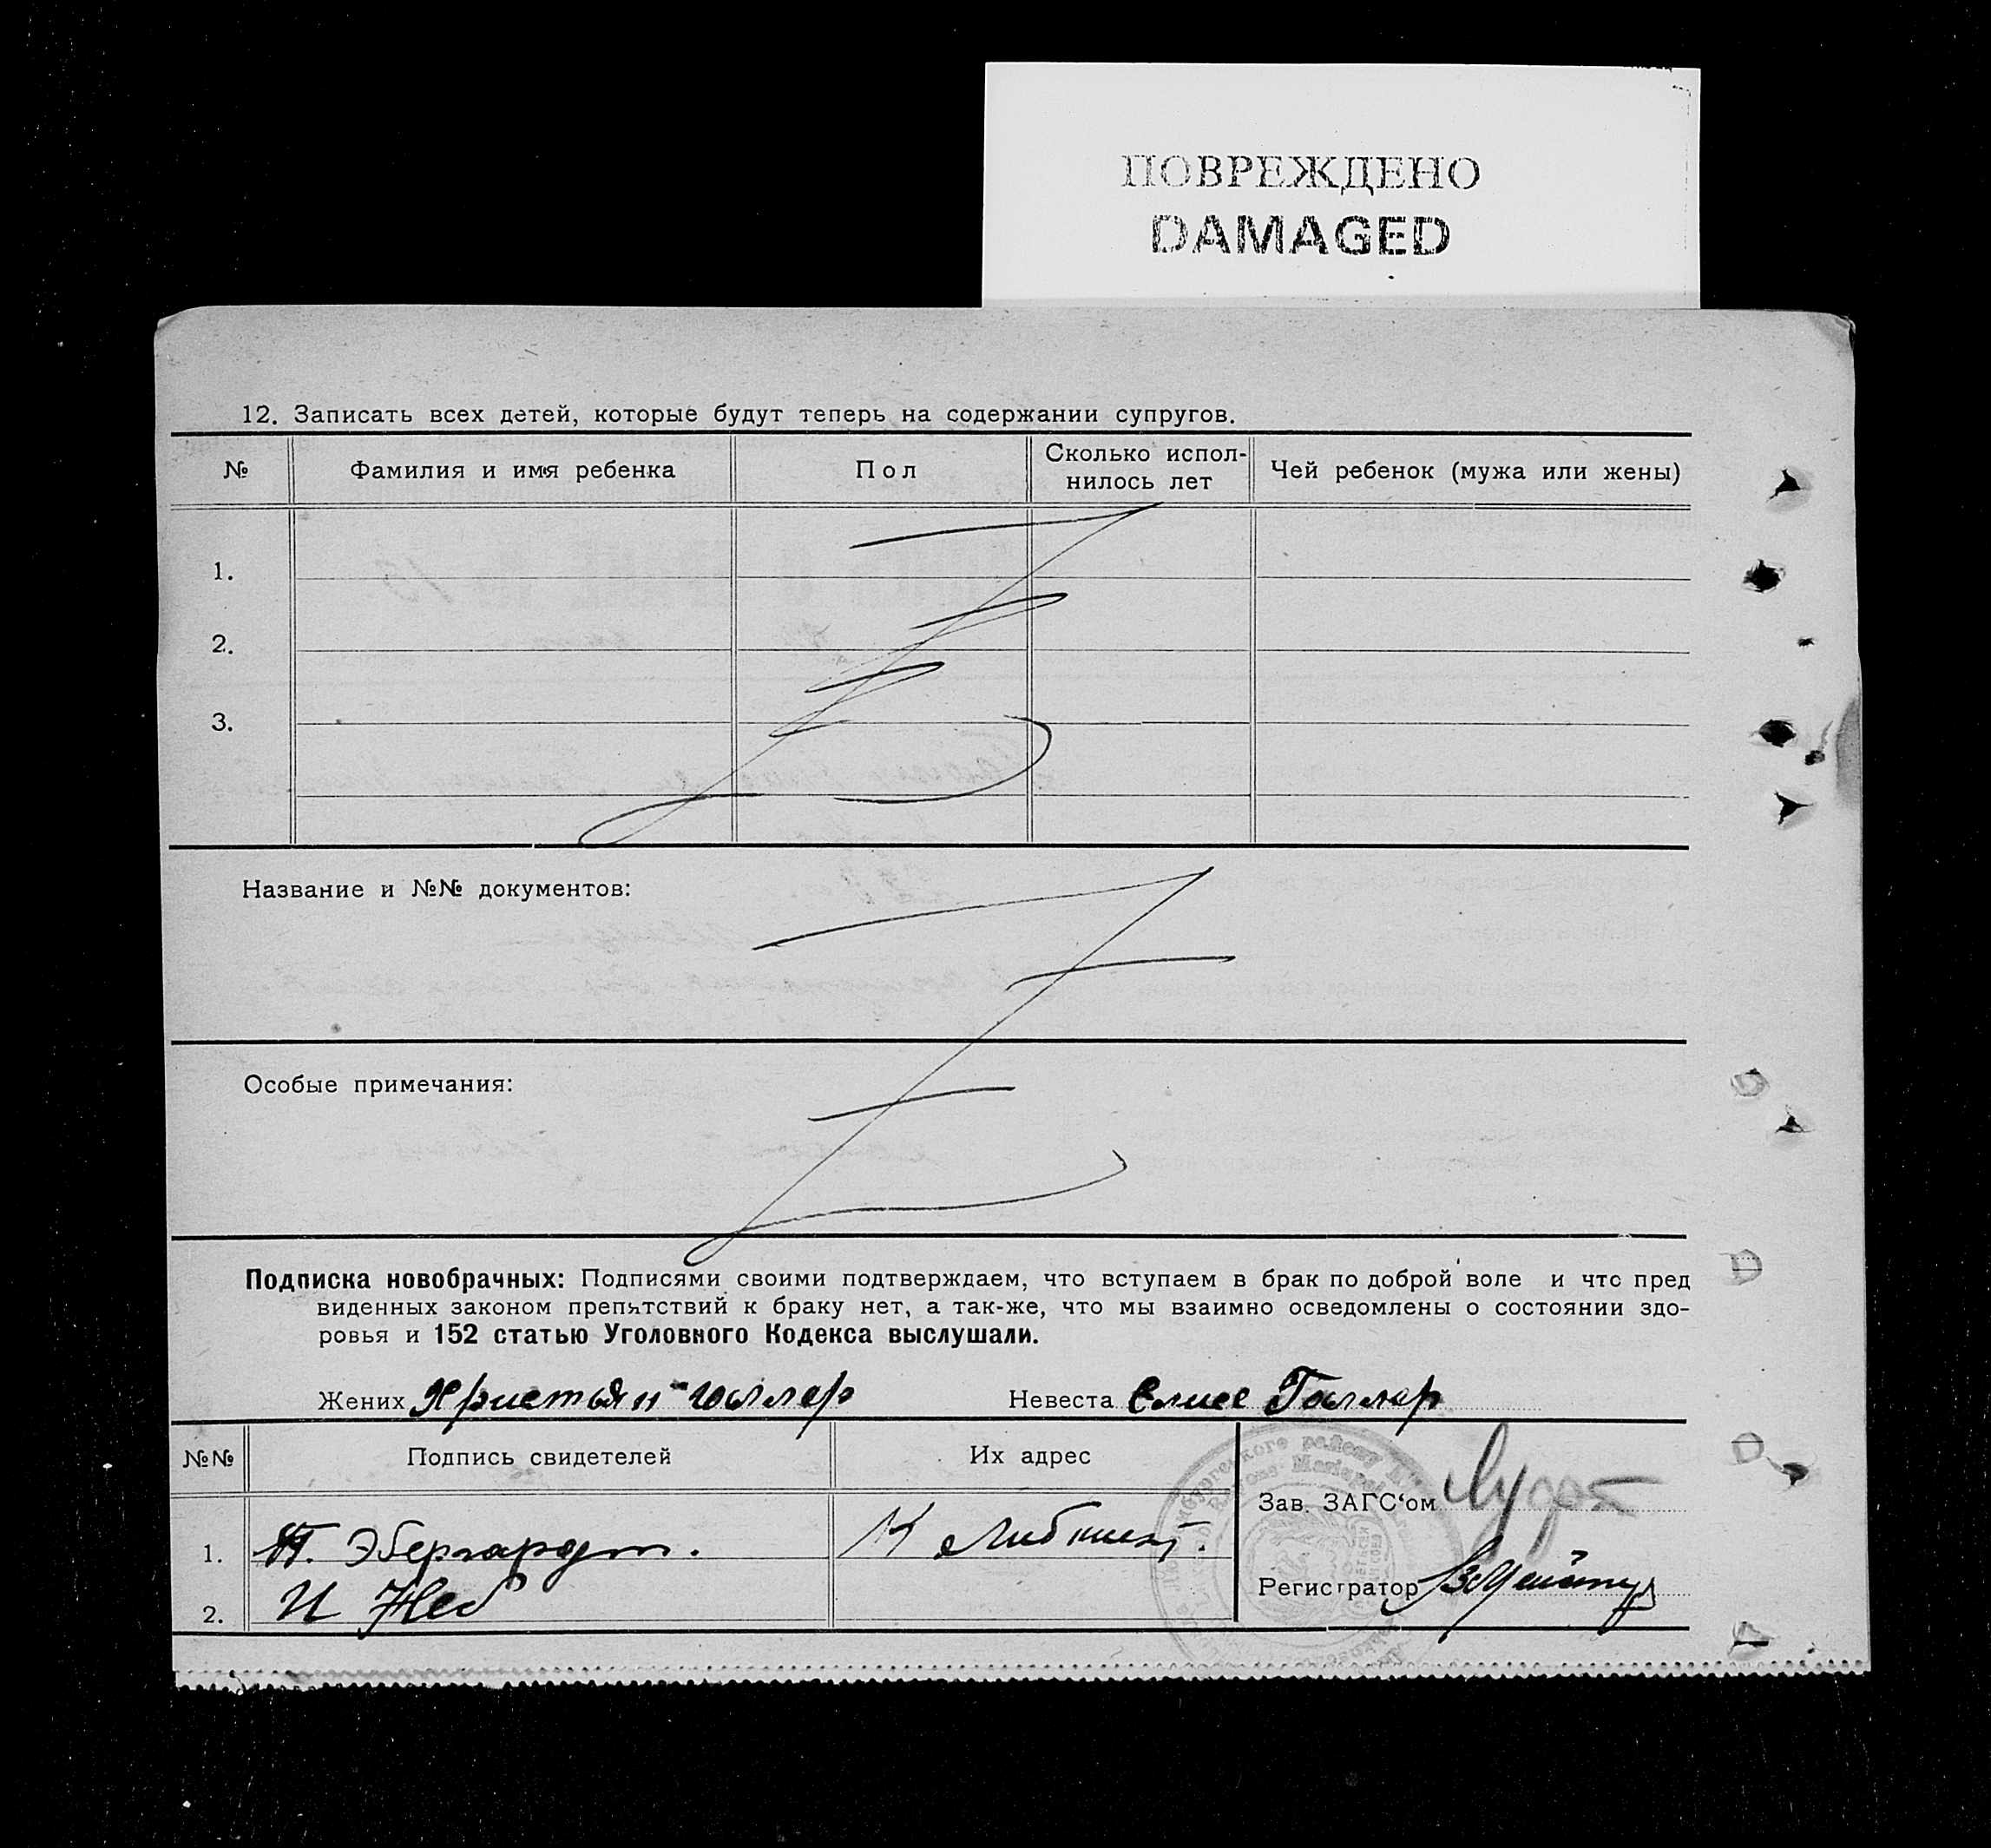 ПОВРЕЖДЕНО
DAMAGED
12. Записать всех детей, которые будут теперь на содержании супругов.
№ Фамилия и имя ребенка Пол Сколько испол-нилось лет Чей ребенок (мужа или жены)
1.
2.
3.
Название и №№ документов:
Особые примечания:
Подписка новобрачных: Подписями своими подтверждаем, что вступаем в брак по доброй воле и что пред
виденных законом препятствий к браку нет, а так-же, что мы взаимно осведомлены о состоянии здо-
ровья и 152 статью Уголовного Кодекса выслушали.
Жених Христьян Галлер Невеста Елисе Галлер
№№ Подпись свидетелей Их адрес
Зав. ЗАГС'ом
1. Эбергардт. К Либкнехт.
Регистратор
2. И